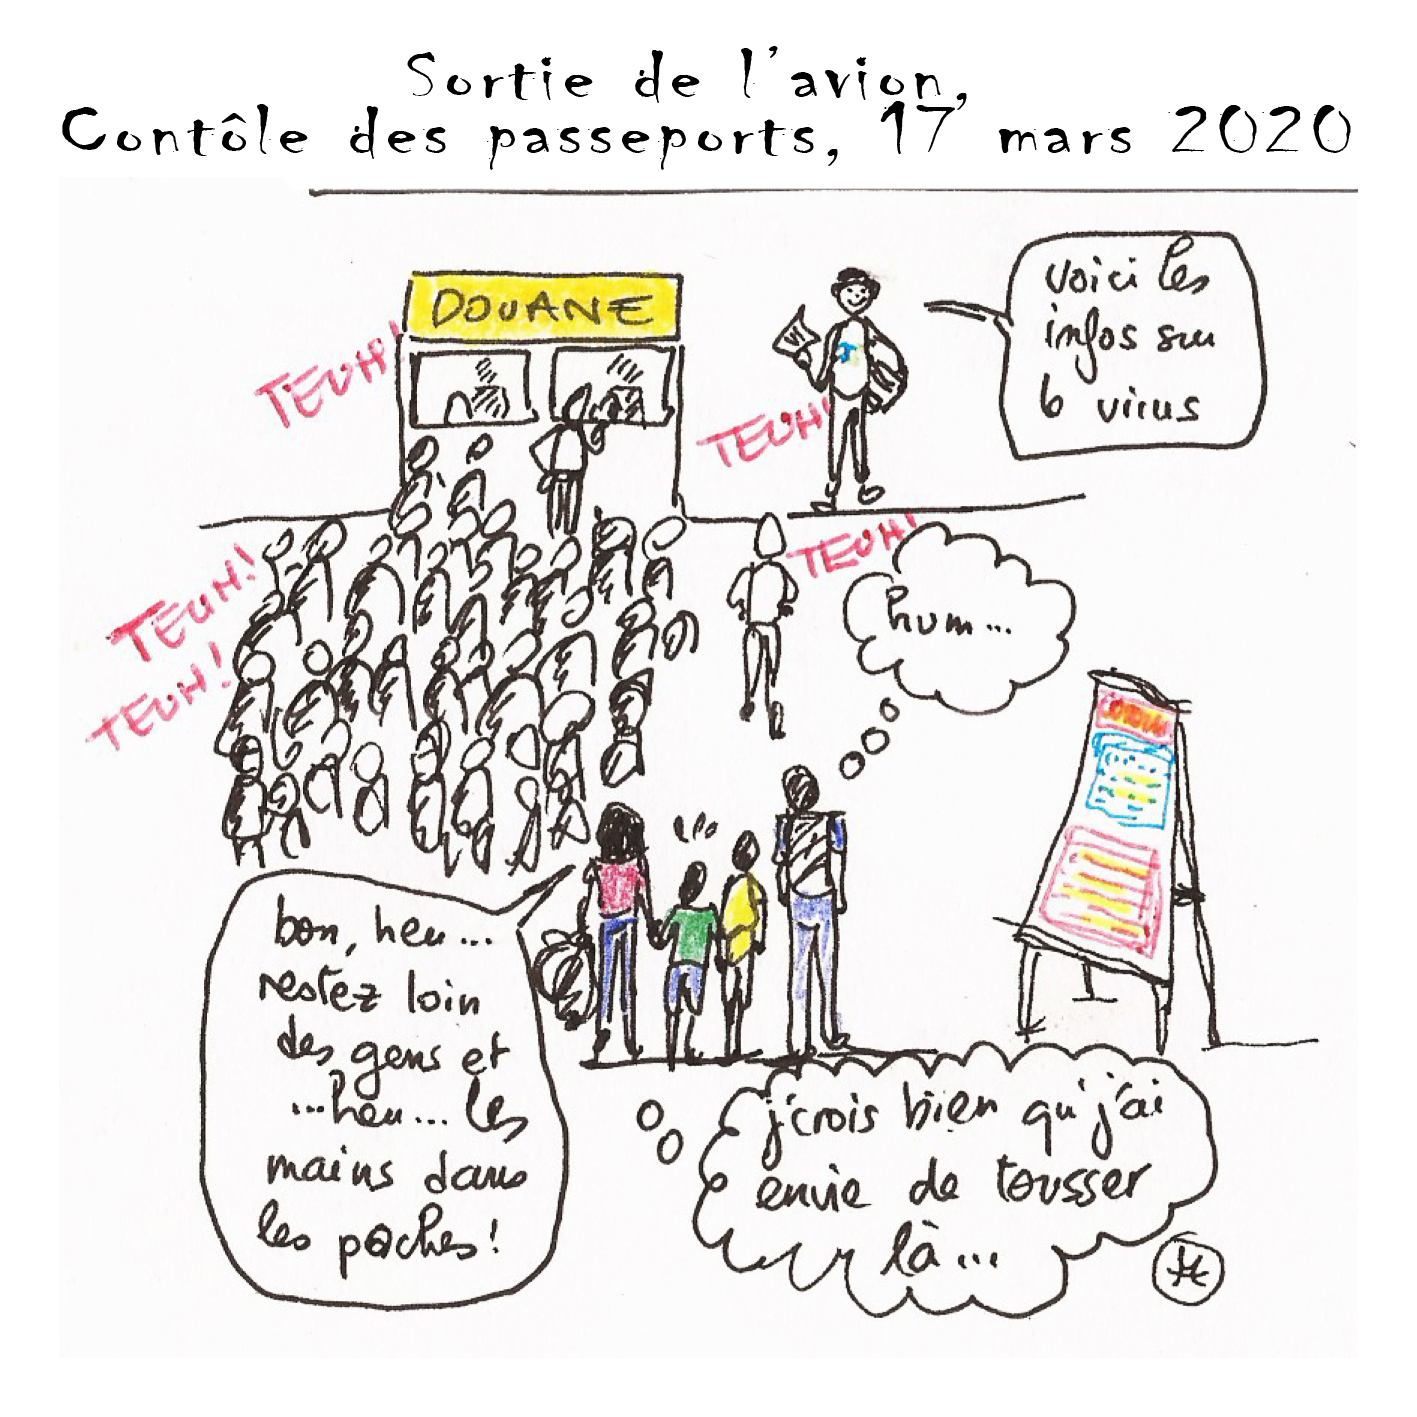 Sortie de l'avion,
Contôle des passeports, 17 mars 2020
DOUANE
voici les
infos sur
le virus
TEUH!
TEUH!
TEUH!
TEUH!
TEUH!
hum...
bon, heu...
restez loin
des gens et
...heu... les
mains dans
les poches!
j'crois bien qu'j'ai
envie de tousser
là...